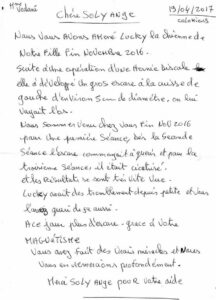 Mme Vadani
19/04/2017
Colomiers
Chère Soly Ange
Nous Vous Avons Amené Lucky la chienne de
Notre Fille Fin Novembre 2016.
Suite d'une opération d'une Hernie biscale
elle a dévelopé un gros escare à la cuisse de
gauche d'environ 5cm de diamètre, on lui
voyait l'os.
Nous Sommes Venu chez Vous Fin Nov 2016
pour une première Séance, dès la Seconde
Séance l'escare commençait à guérir et pour la
troisième Séance, il était cicatrisé.
et les Résultats se sont très vite Vue -
Lucky avait des tremblement depuis petite et Vous
l'avez guéri de ça aussi.
Ace jour plus d'escare - grâce à Votre
MAGNéTISME
Vous avez fait des Vrais miracles et Nous
Vous en remercions profondément.
Merci Soly Ange pour Votre aide